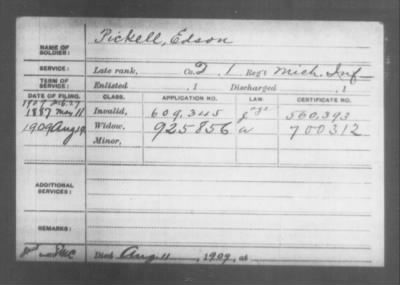 NAME OF SOLDIER: Pickell, Edson
SERVICE: Late rank, Co. 2, 1 Reg't Mich. Inf
TERM OF SERVICE: Enlisted , 1 Discharged , 1
DATE OF FILING. CLASS. APPLICATION NO. LAW. CERTIFICATE NO.
1887 May 11 Invalid, 609,345 560,393
1909 Aug 19 Widow, 925856 700312
Minor,
ADDITIONAL SERVICES:
REMARKS:
Died Aug. 11, 1909, at